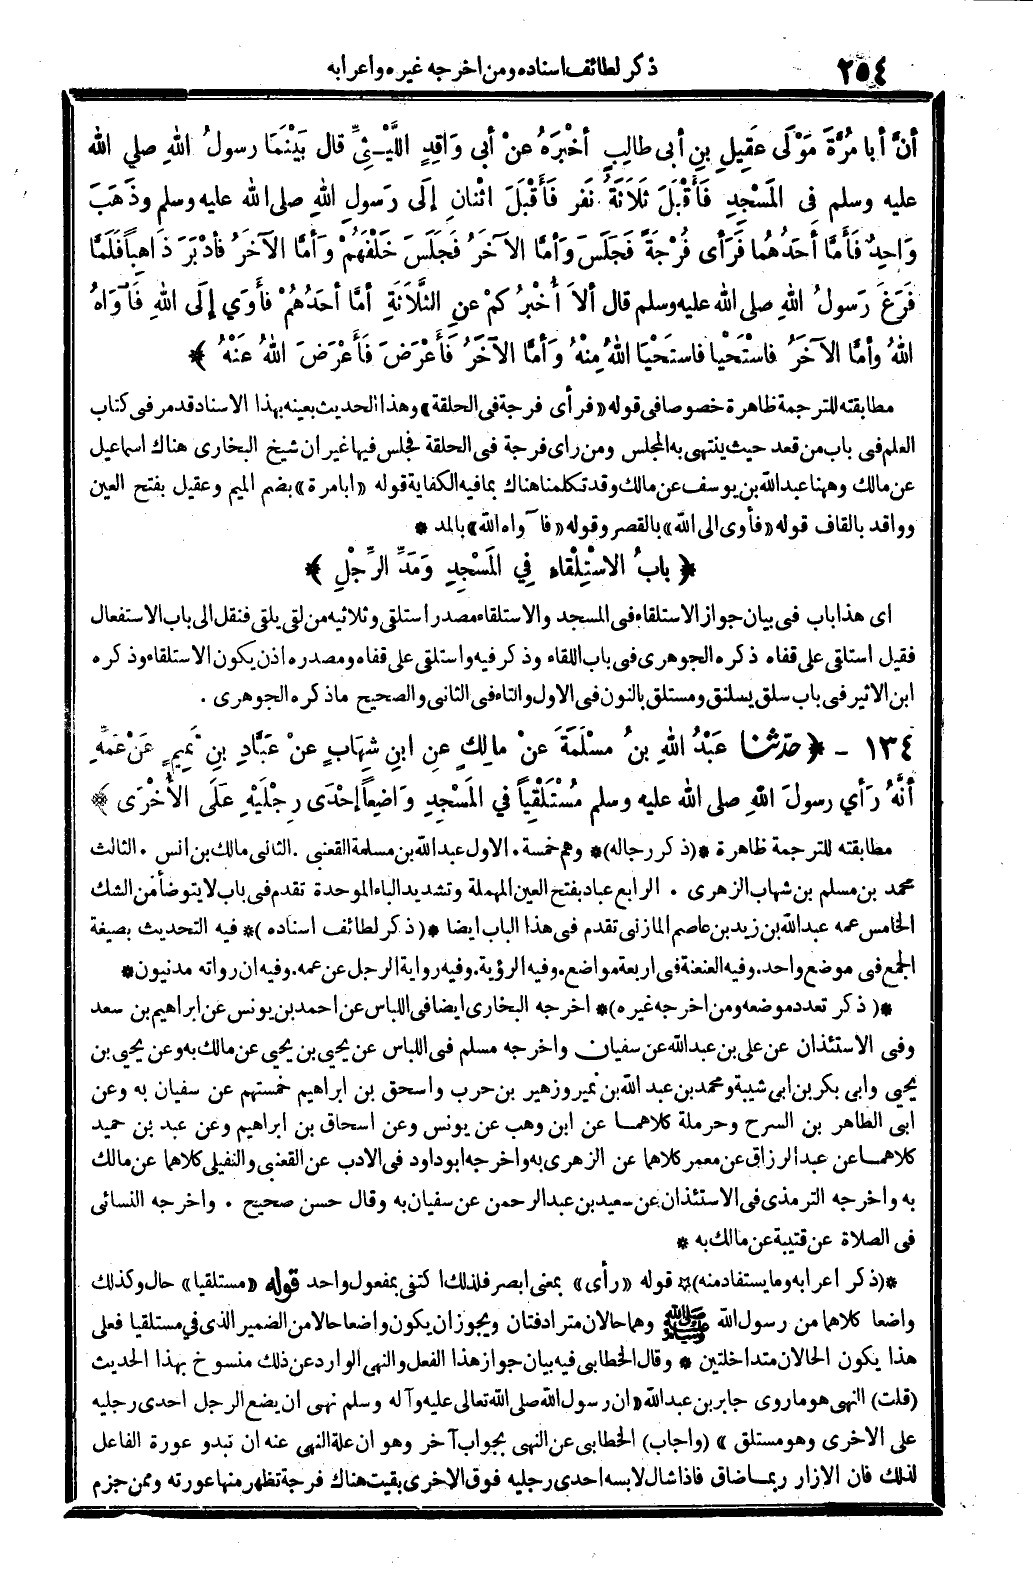 ٢٥٤
ذكر لطائف اسناده ومن اخرجه غيره واعرابه
أنَّ أبا مُرَّةَ مَوْلَى عَقِيلِ بنِ أبى طالِبٍ أخْبَرَهُ عنْ أبى وَاقِدٍ اللَّيْثِيِّ قال بَيْنَمَا رسولُ اللهِ صلي الله
عليه وسلم فى المَسْجِدِ فَأَقْبَلَ ثَلَاثَةُ نَفَرٍ فَأَقْبَلَ اثْنانِ إلَى رَسولِ اللهِ صلى الله عليه وسلم وذَهَبَ
وَاحِدٌ فَأَمَّا أحَدُهُما فَرَأى فُرْجَةً فَجَلَسَ وَأمَّا الآخَرُ فَجَلَسَ خَلْفَهُمْ وَأمَّا الآخَرُ فأدْبَرَ ذَاهِباً فَلَمَّا
فَرَغَ رَسولُ اللهِ صلى الله عليه وسلم قال ألاَ أُخْبِرُكمْ عنِ الثَّلَاثَةِ أمَّا أحَدُهُمْ فأَوَي إلَى اللهِ فَآوَاهُ
اللهُ وأمَّا الآخَرُ فاسْتَحْيا فاستَحْيَا اللهُ مِنْهُ وَأمَّا الآخَرُ فَأَعْرَضَ فَأَعْرَضَ اللهُ عَنْهُ ﴾
مطابقته للترجمة ظاهرة خصوصا فى قوله «فرأى فرجة فى الحلقة» وهذا الحديث بعينه بهذا الاسناد قد مر فى كتاب
العلم فى باب من قعد حيث ينتهى به المجلس ومن راى فرجة فى الحلقة فجلس فيها غير ان شيخ البخارى هناك اسماعيل
عن مالك وههنا عبد الله بن يوسف عن مالك وقد تكلمنا هناك بما فيه الكفاية قوله «ابا مرة» بضم الميم وعقيل بفتح العين
وواقد بالقاف قوله «فأوى الى الله» بالقصر وقوله «فآواه الله» بالمد *
﴿ بابُ الاسْتِلْقاءِ فِي المَسْجِدِ وَمَدِّ الرِّجْلِ ﴾
اى هذا باب فى بيان جواز الاستلقاء فى المسجد والاستلقاء مصدر استلقى وثلاثيه من لقى يلقى فنقل الى باب الاستفعال
فقيل استلقى على قفاه ذكره الجوهرى فى باب اللقاء وذكر فيه واستلقى على قفاه ومصدره اذن يكون الاستلقاء وذكره
ابن الاثير فى باب سلق يسلنق ومستلق بالنون فى الاول والتاء فى الثانى والصحيح ما ذكره الجوهرى .
١٣٤ - ﴿ حَدَّثَنا عَبْدُ اللهِ بنُ مَسْلَمَةَ عنْ مالِكٍ عنِ ابنِ شِهَابٍ عنْ عَبَّادِ بنِ تَمِيمٍ عَنْ عَمِّهِ
أنَّهُ رَأي رسولَ اللهِ صلى الله عليه وسلم مُسْتَلْقِياً فِي المَسْجِدِ وَاضِعاً إحْدَى رِجْلَيْهِ عَلَى الأُخْرَى ﴾
مطابقته للترجمة ظاهرة *(ذكر رجاله)* وهم خمسة . الاول عبد الله بن مسلمة القعنبى . الثانى مالك بن انس . الثالث
محمد بن مسلم بن شهاب الزهرى . الرابع عباد بفتح العين المهملة وتشديد الباء الموحدة تقدم فى باب لا يتوضأ من الشك
الخامس عمه عبد الله بن زيد بن عاصم المازنى تقدم فى هذا الباب ايضا *(ذكر لطائف اسناده)* فيه التحديث بصيغة
الجمع فى موضع واحد . وفيه العنعنة فى اربعة مواضع . وفيه الرؤية . وفيه رواية الرجل عن عمه . وفيه ان رواته مدنيون *
*(ذكر تعدد موضعه ومن اخرجه غيره)* اخرجه البخارى ايضا فى اللباس عن احمد بن يونس عن ابراهيم بن سعد
وفى الاستئذان عن على بن عبد الله عن سفيان واخرجه مسلم فى اللباس عن يحيى بن يحيى عن مالك به وعن يحيى بن
يحيى وابى بكر بن ابى شيبة ومحمد بن عبد الله بن نمير وزهير بن حرب واسحق بن ابراهيم خمستهم عن سفيان به وعن
ابى الطاهر بن السرح وحرملة كلاهما عن ابن وهب عن يونس وعن اسحاق بن ابراهيم وعن عبد بن حميد
كلاهما عن عبد الرزاق عن معمر كلاهما عن الزهرى به واخرجه ابو داود فى الادب عن القعنبى والنفيلى كلاهما عن مالك
به واخرجه الترمذى فى الاستئذان عن سعيد بن عبد الرحمن عن سفيان به وقال حسن صحيح . واخرجه النسائى
فى الصلاة عن قتيبة عن مالك به *
*(ذكر اعرابه وما يستفاد منه)* قوله «رأى» بمعنى ابصر فلذلك اكتفى بمفعول واحد قوله «مستلقيا» حال وكذلك
واضعا كلاهما من رسول الله ﷺ وهما حالان مترادفتان ويجوز ان يكون واضعا حالا من الضمير الذى فى مستلقيا فعلى
هذا يكون الحالان متداخلتين * وقال الخطابى فيه بيان جواز هذا الفعل والنهى الوارد عن ذلك منسوخ بهذا الحديث
(قلت) النهى هو ما روى جابر بن عبد الله «ان رسول الله صلى الله تعالى عليه وآله وسلم نهى ان يضع الرجل احدى رجليه
على الاخرى وهو مستلق» (واجاب) الخطابى عن النهى بجواب آخر وهو ان علة النهى عنه ان تبدو عورة الفاعل
لذلك فان الازار ربما ضاق فاذا شال لابسه احدى رجليه فوق الاخرى بقيت هناك فرجة تظهر منها عورته وممن جزم